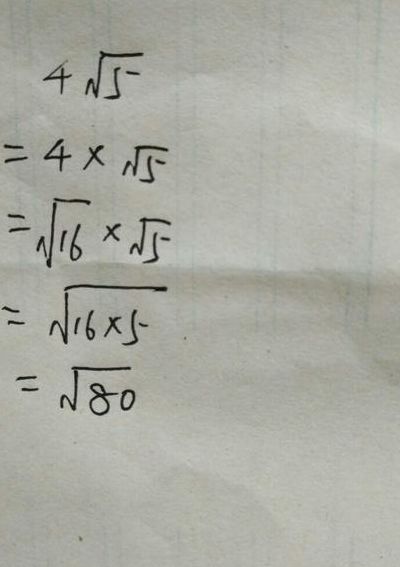 4√5
= 4 × √5
= √16 × √5
= √16×5
= √80